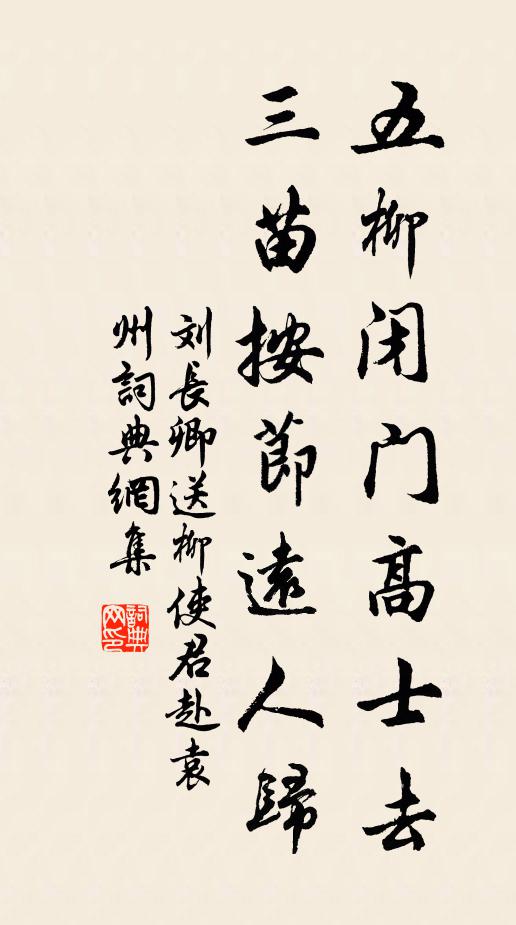 五柳闭门高士去
三苗按節遠人歸
刘長卿送柳使君赴袁
州詞典網集
詞典
网印